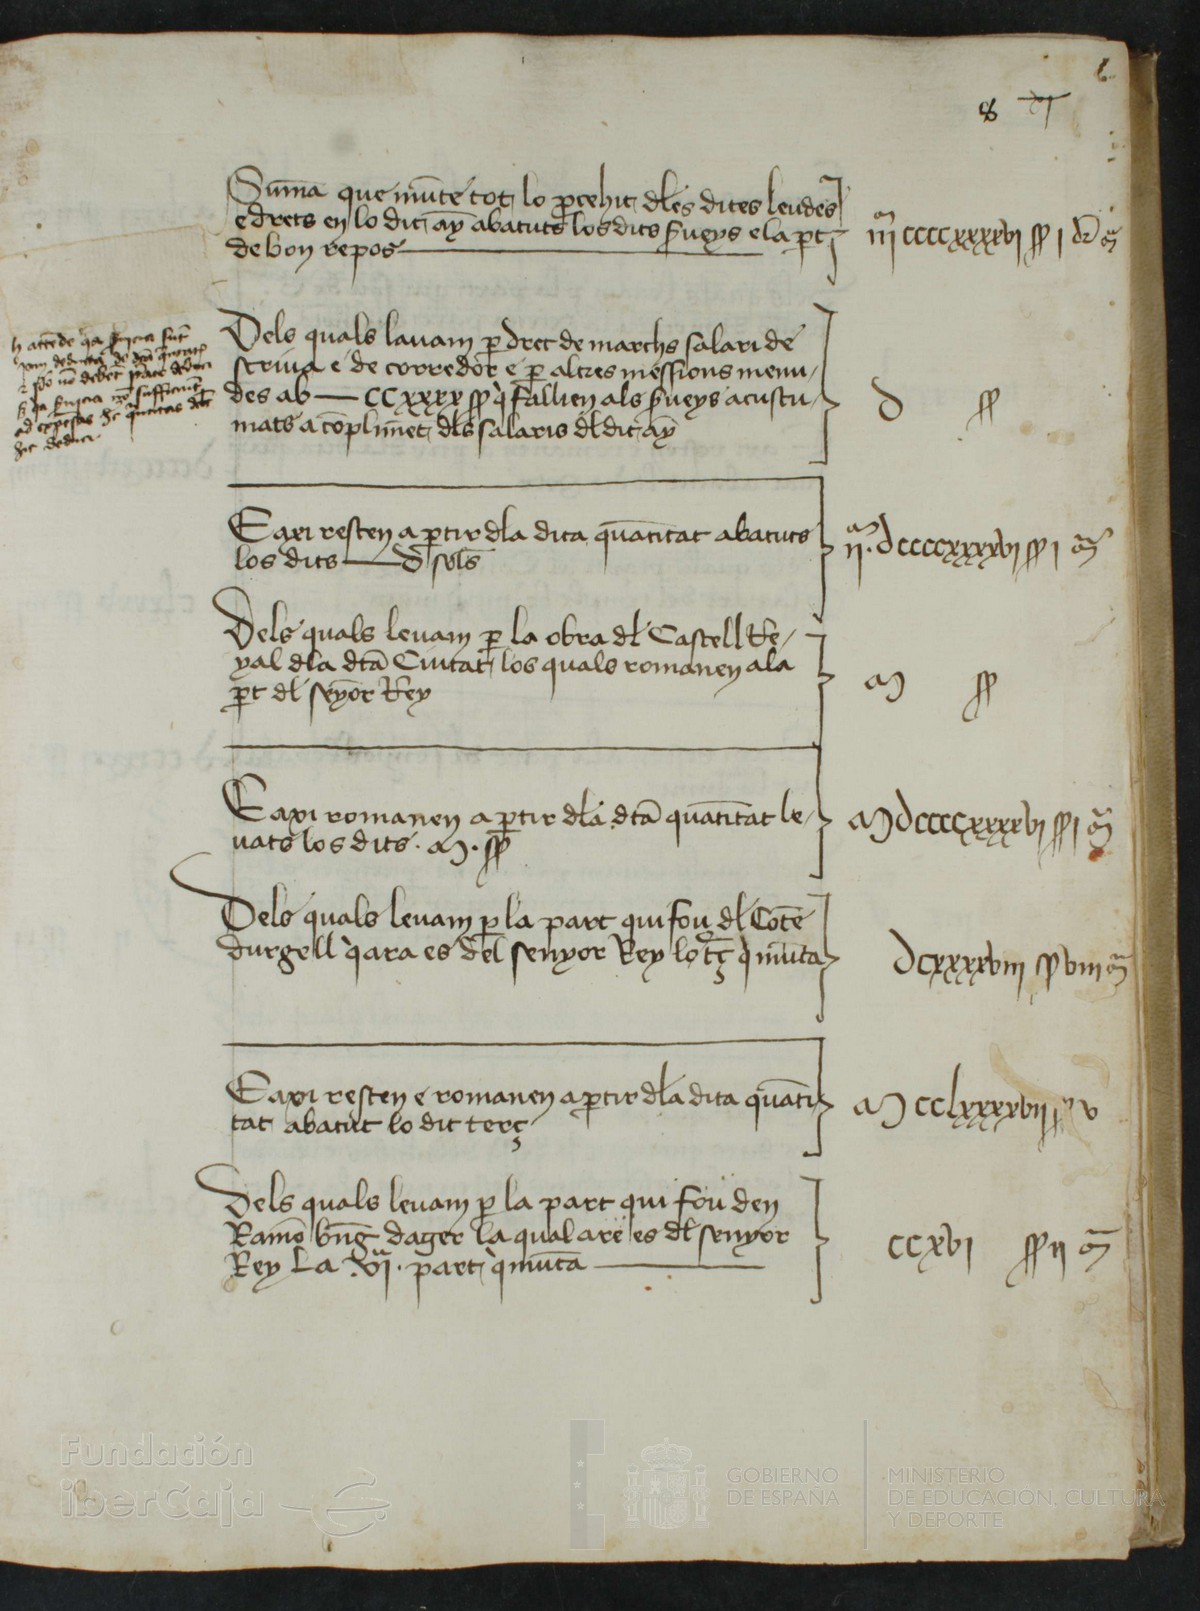 8
Suma que munte tot lo pcehit dles dites leudes
e drets en lo dit any abatuts los dits sueys e la pt
de bon repos
iii ccccxxxxvi ss i
Dels quals lauam p dret de marchs salari de
scriua e de corredor e p altres messions menu-
des ab — CCxxxx ss q fallien als sueys acustu-
mats a complimet dls salaris dl dit any
d ss
E axi resten a ptir dla dita quantitat abatuts
los dits — d sols
ii. dccccxxxxvi ss i
Dels quals leuam p la obra dl Castell Re-
yal dla dta Ciutat los quals romanen a la
pt dl senyor Rey
m ss
E axi romanen a ptir dla dta quantitat le-
uats los dits . m . ss
m dccccxxxxvi ss i
Dels quals leuam p la part qui fou dl Cote
durgell q ara es del senyor Rey lo tç q munta
dcxxxxviii ss viii
E axi resten e romanen a ptir dla dita quanti-
tat abatut lo dit terç
m cclxxxxvii ss v
Dels quals leuam p la part qui fou den
Ramo bng dager la qual are es dl senyor
Rey La .vi. part q munta
ccxvi ss ii
Fundación
iberCaja
GOBIERNO
DE ESPAÑA
MINISTERIO
DE EDUCACIÓN, CULTURA
Y DEPORTE